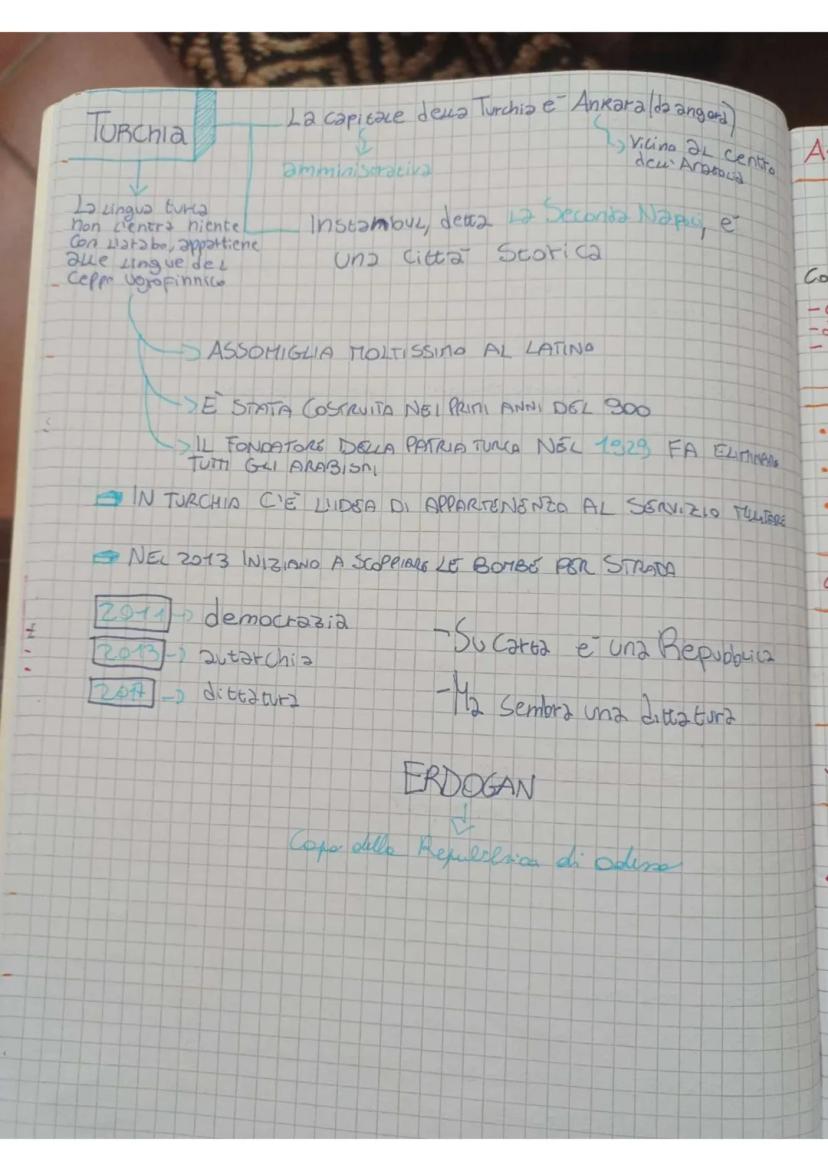 TURCHIA
La capitale della Turchia e' Ankara (da angora)
amministrativa
Vicino al centro
dell'Anatolia
La lingua turca
non c'entra niente
con l'arabo, appartiene
alle lingue del
ceppo ugrofinnico
Instambul, detta la Seconda Napoli, e'
una città storica
ASSOMIGLIA MOLTISSIMO AL LATINO
È STATA COSTRUITA NEI PRIMI ANNI DEL 900
IL FONDATORE DELLA PATRIA TURCA NEL 1929 FA ELIMINARE
TUTTI GLI ARABISMI
IN TURCHIA C'È L'IDEA DI APPARTENENZA AL SERVIZIO MILITARE
NEL 2013 INIZIANO A SCOPPIARE LE BOMBE PER STRADA
2011 → democrazia
2013 → autarchia
2017 → dittatura
- Su carta e' una Repubblica
- Ma sembra una dittatura
ERDOGAN
Capo della Repubblica di
A
Co